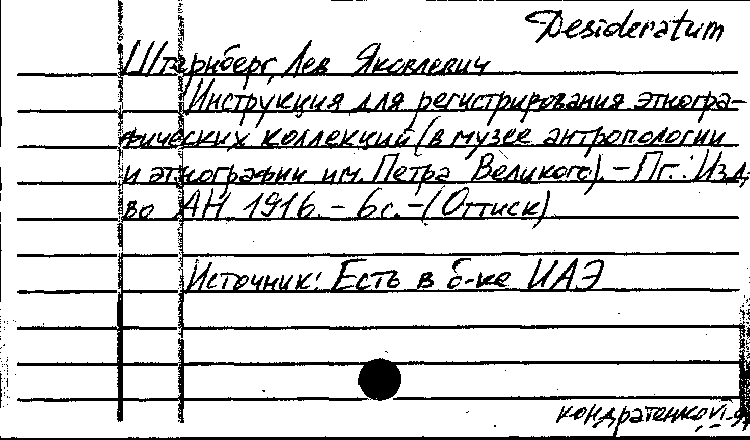 Desideratum
Штернберг, Лев Яковлевич
Инструкция для регистрирования этногра-
фических коллекций (в музее антропологии
и этнографии им. Петра Великого). – Пг.: Изд.
во АН 1916. – 6с. – (Оттиск)
Источник: Есть в б-ке ИАЭ
Кондратенко, VI-